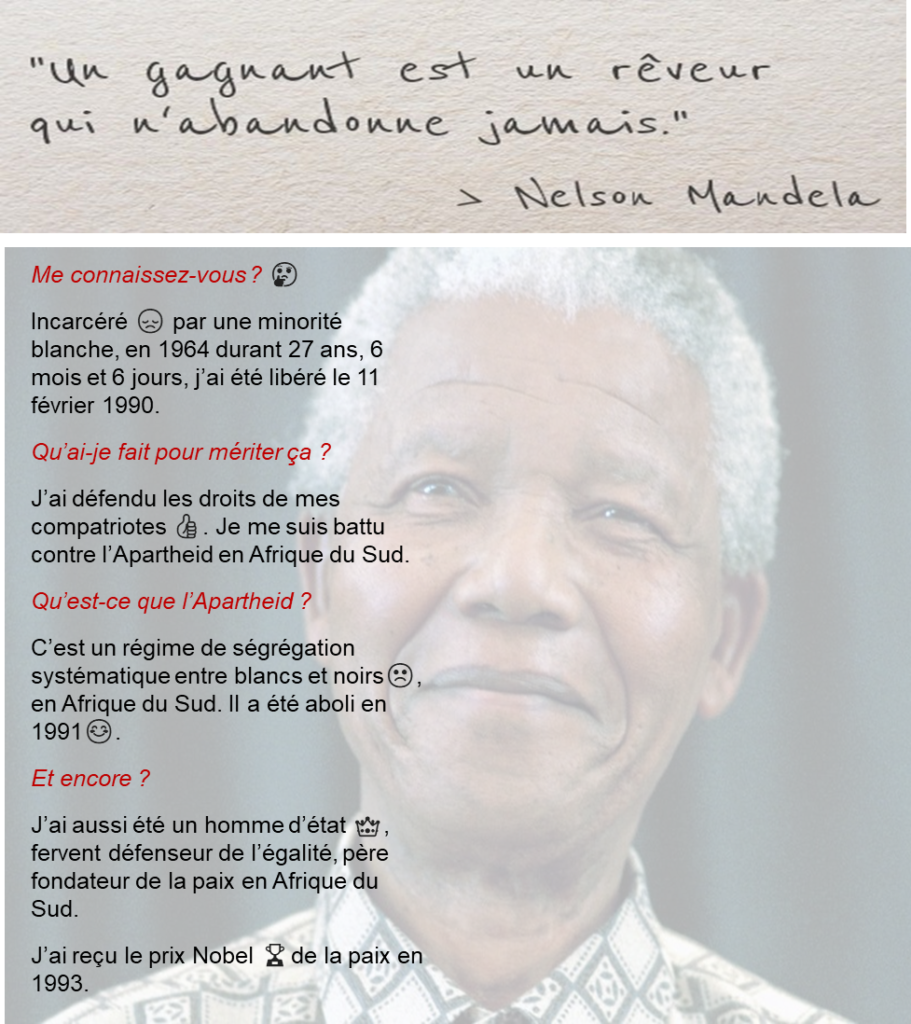 "Un gagnant est un rêveur
qui n'abandonne jamais."
> Nelson Mandela
Me connaissez-vous ? 🤔
Incarcéré 😔 par une minorité
blanche, en 1964 durant 27 ans, 6
mois et 6 jours, j’ai été libéré le 11
février 1990.
Qu’ai-je fait pour mériter ça ?
J’ai défendu les droits de mes
compatriotes 👍. Je me suis battu
contre l’Apartheid en Afrique du Sud.
Qu’est-ce que l’Apartheid ?
C’est un régime de ségrégation
systématique entre blancs et noirs☹,
en Afrique du Sud. Il a été aboli en
1991😊.
Et encore ?
J’ai aussi été un homme d’état 👑,
fervent défenseur de l’égalité, père
fondateur de la paix en Afrique du
Sud.
J’ai reçu le prix Nobel 🏆 de la paix en
1993.